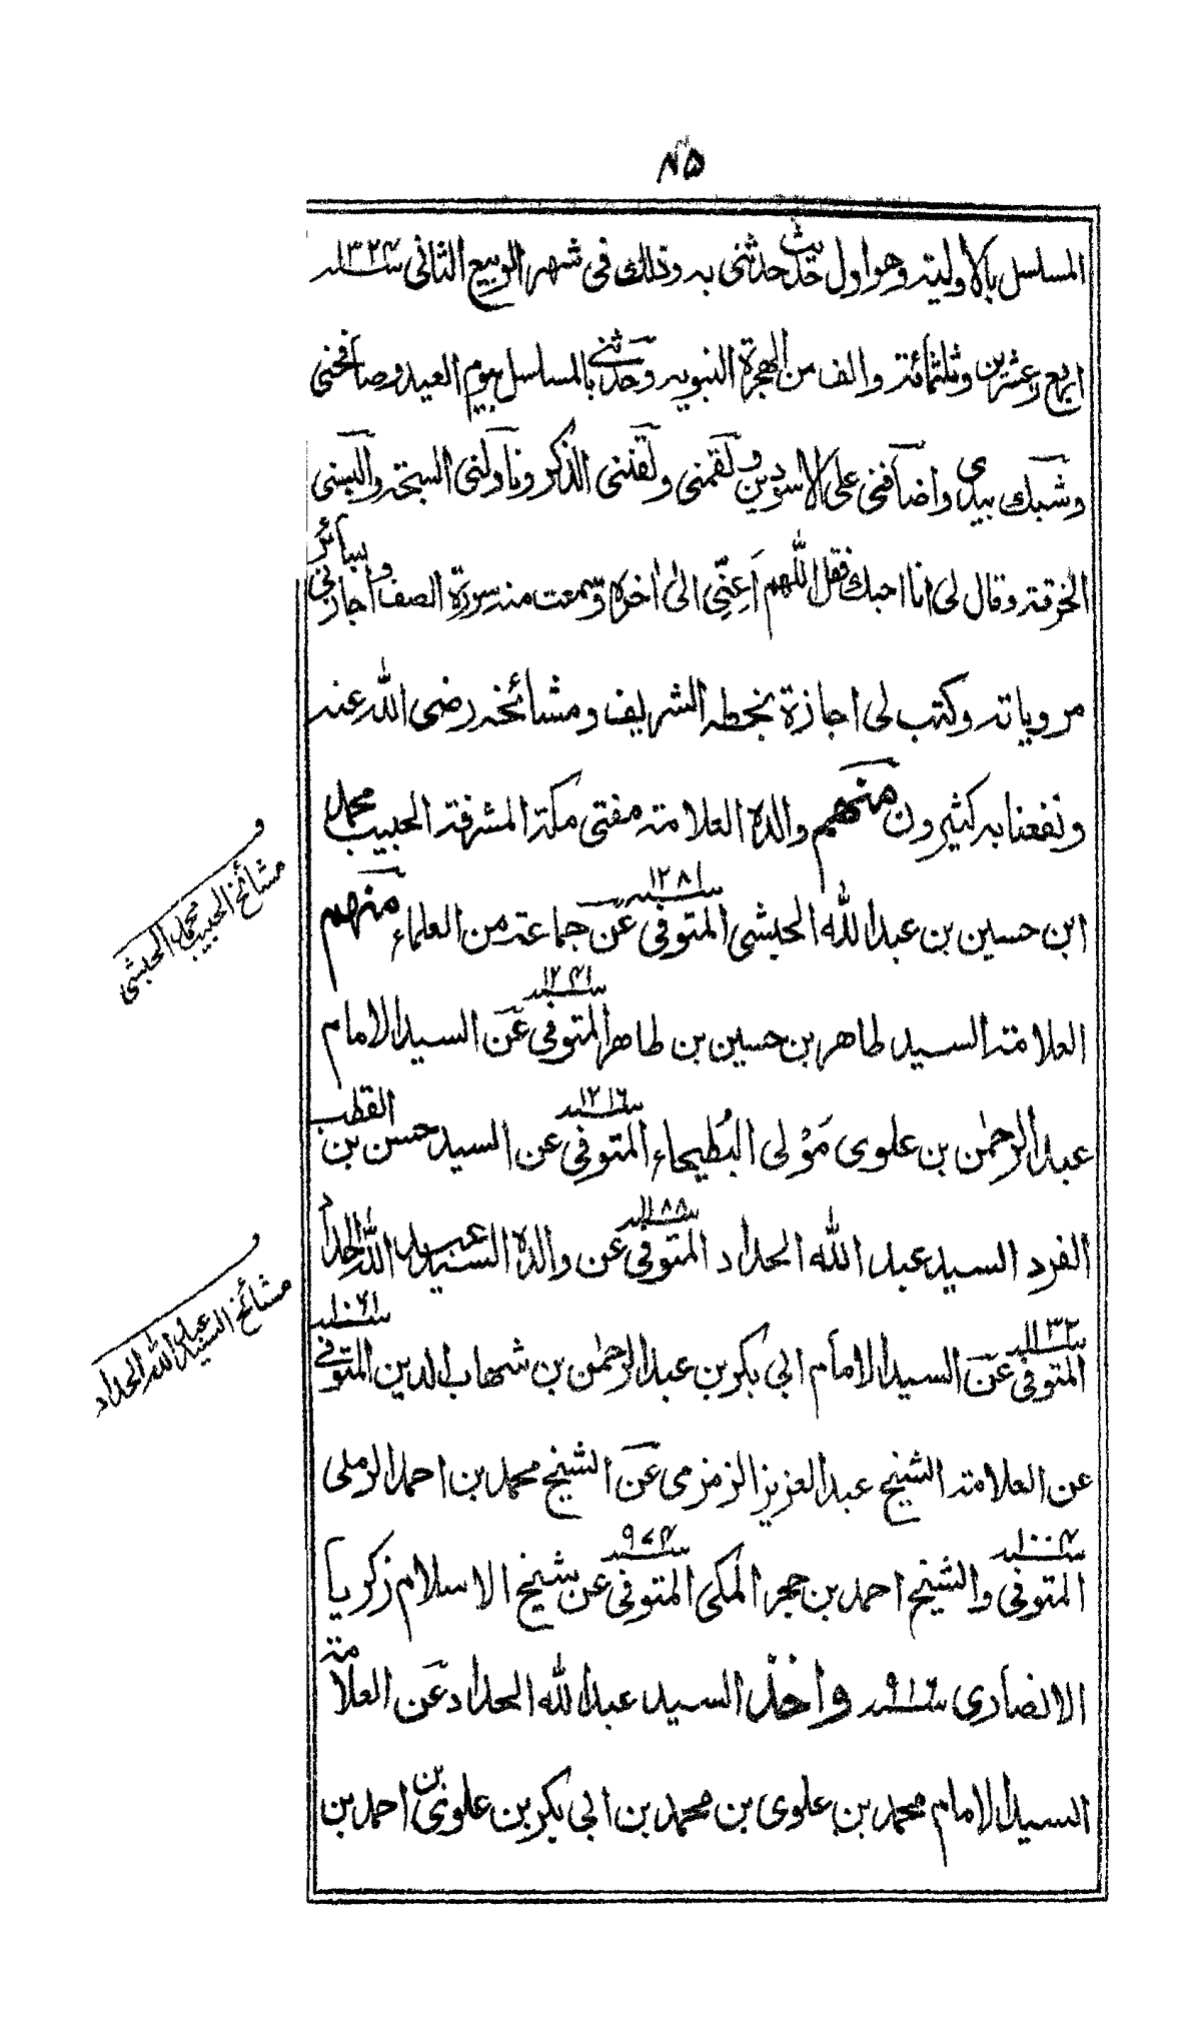 ٨٥
المسلسل بالاولية وهو اول حديث حدثنى به وذلك فى شهر الربيع الثانى سنة ١٣٢٤
اربع وعشرين وثلثمائة والف من الهجرة النبويه وحدثنى بالمسلسل بيوم العيد وصافحنى
وشبك بيدى واضافنى على الاسودين ولقمنى ولقننى الذكر وناولنى السبحة والبسنى
الخرقة وقال لى انا احبك فقل اللهم اَعِنِّى الىٰ اٰخره وسمعت منه سورة الصف واجازنى بسائر
مروياته وكتب لى اجازة بخطه الشريف ومشائخه رضى الله عنه
ونفعنا به كثيرون منهم والده العلامة مفتى مكة المشرفة الحبيب محمد
ابن حسين بن عبد الله الحبشى المتوفى سنة ١٢٨١ عن جماعة من العلماء منهم
العلامة السيد طاهر بن حسين بن طاهر المتوفى سنة ١٢٤١ عن السيد الامام
عبد الرحمٰن بن علوى مَوْلى البُطيحاء المتوفى سنة ١٢١٦ عن السيد حسن بن القطب
الفرد السيد عبد الله الحداد المتوفى سنة ١١٨٨ عن والده السيد عبد الله الحداد
المتوفى سنة ١١٣٢ عن السيد الامام ابى بكر بن عبد الرحمٰن بن شهاب الدين المتوفى سنة ١٠٦١
عن العلامة الشيخ عبد العزيز الزمزمى عن الشيخ محمد بن احمد الرملى
المتوفى سنة ١٠٠٤ والشيخ احمد بن حجر المكى المتوفى سنة ٩٧٤ عن شيخ الاسلام زكريا
الانصارى سنة ٩١٦ واخذ السيد عبد الله الحداد عن العلامة
السيد الامام محمد بن علوى بن محمد بن ابى بكر بن علوى بن احمد بن
و مشائخ الحبيب محمد الحبشى
و مشائخ السيد عبد الله الحداد